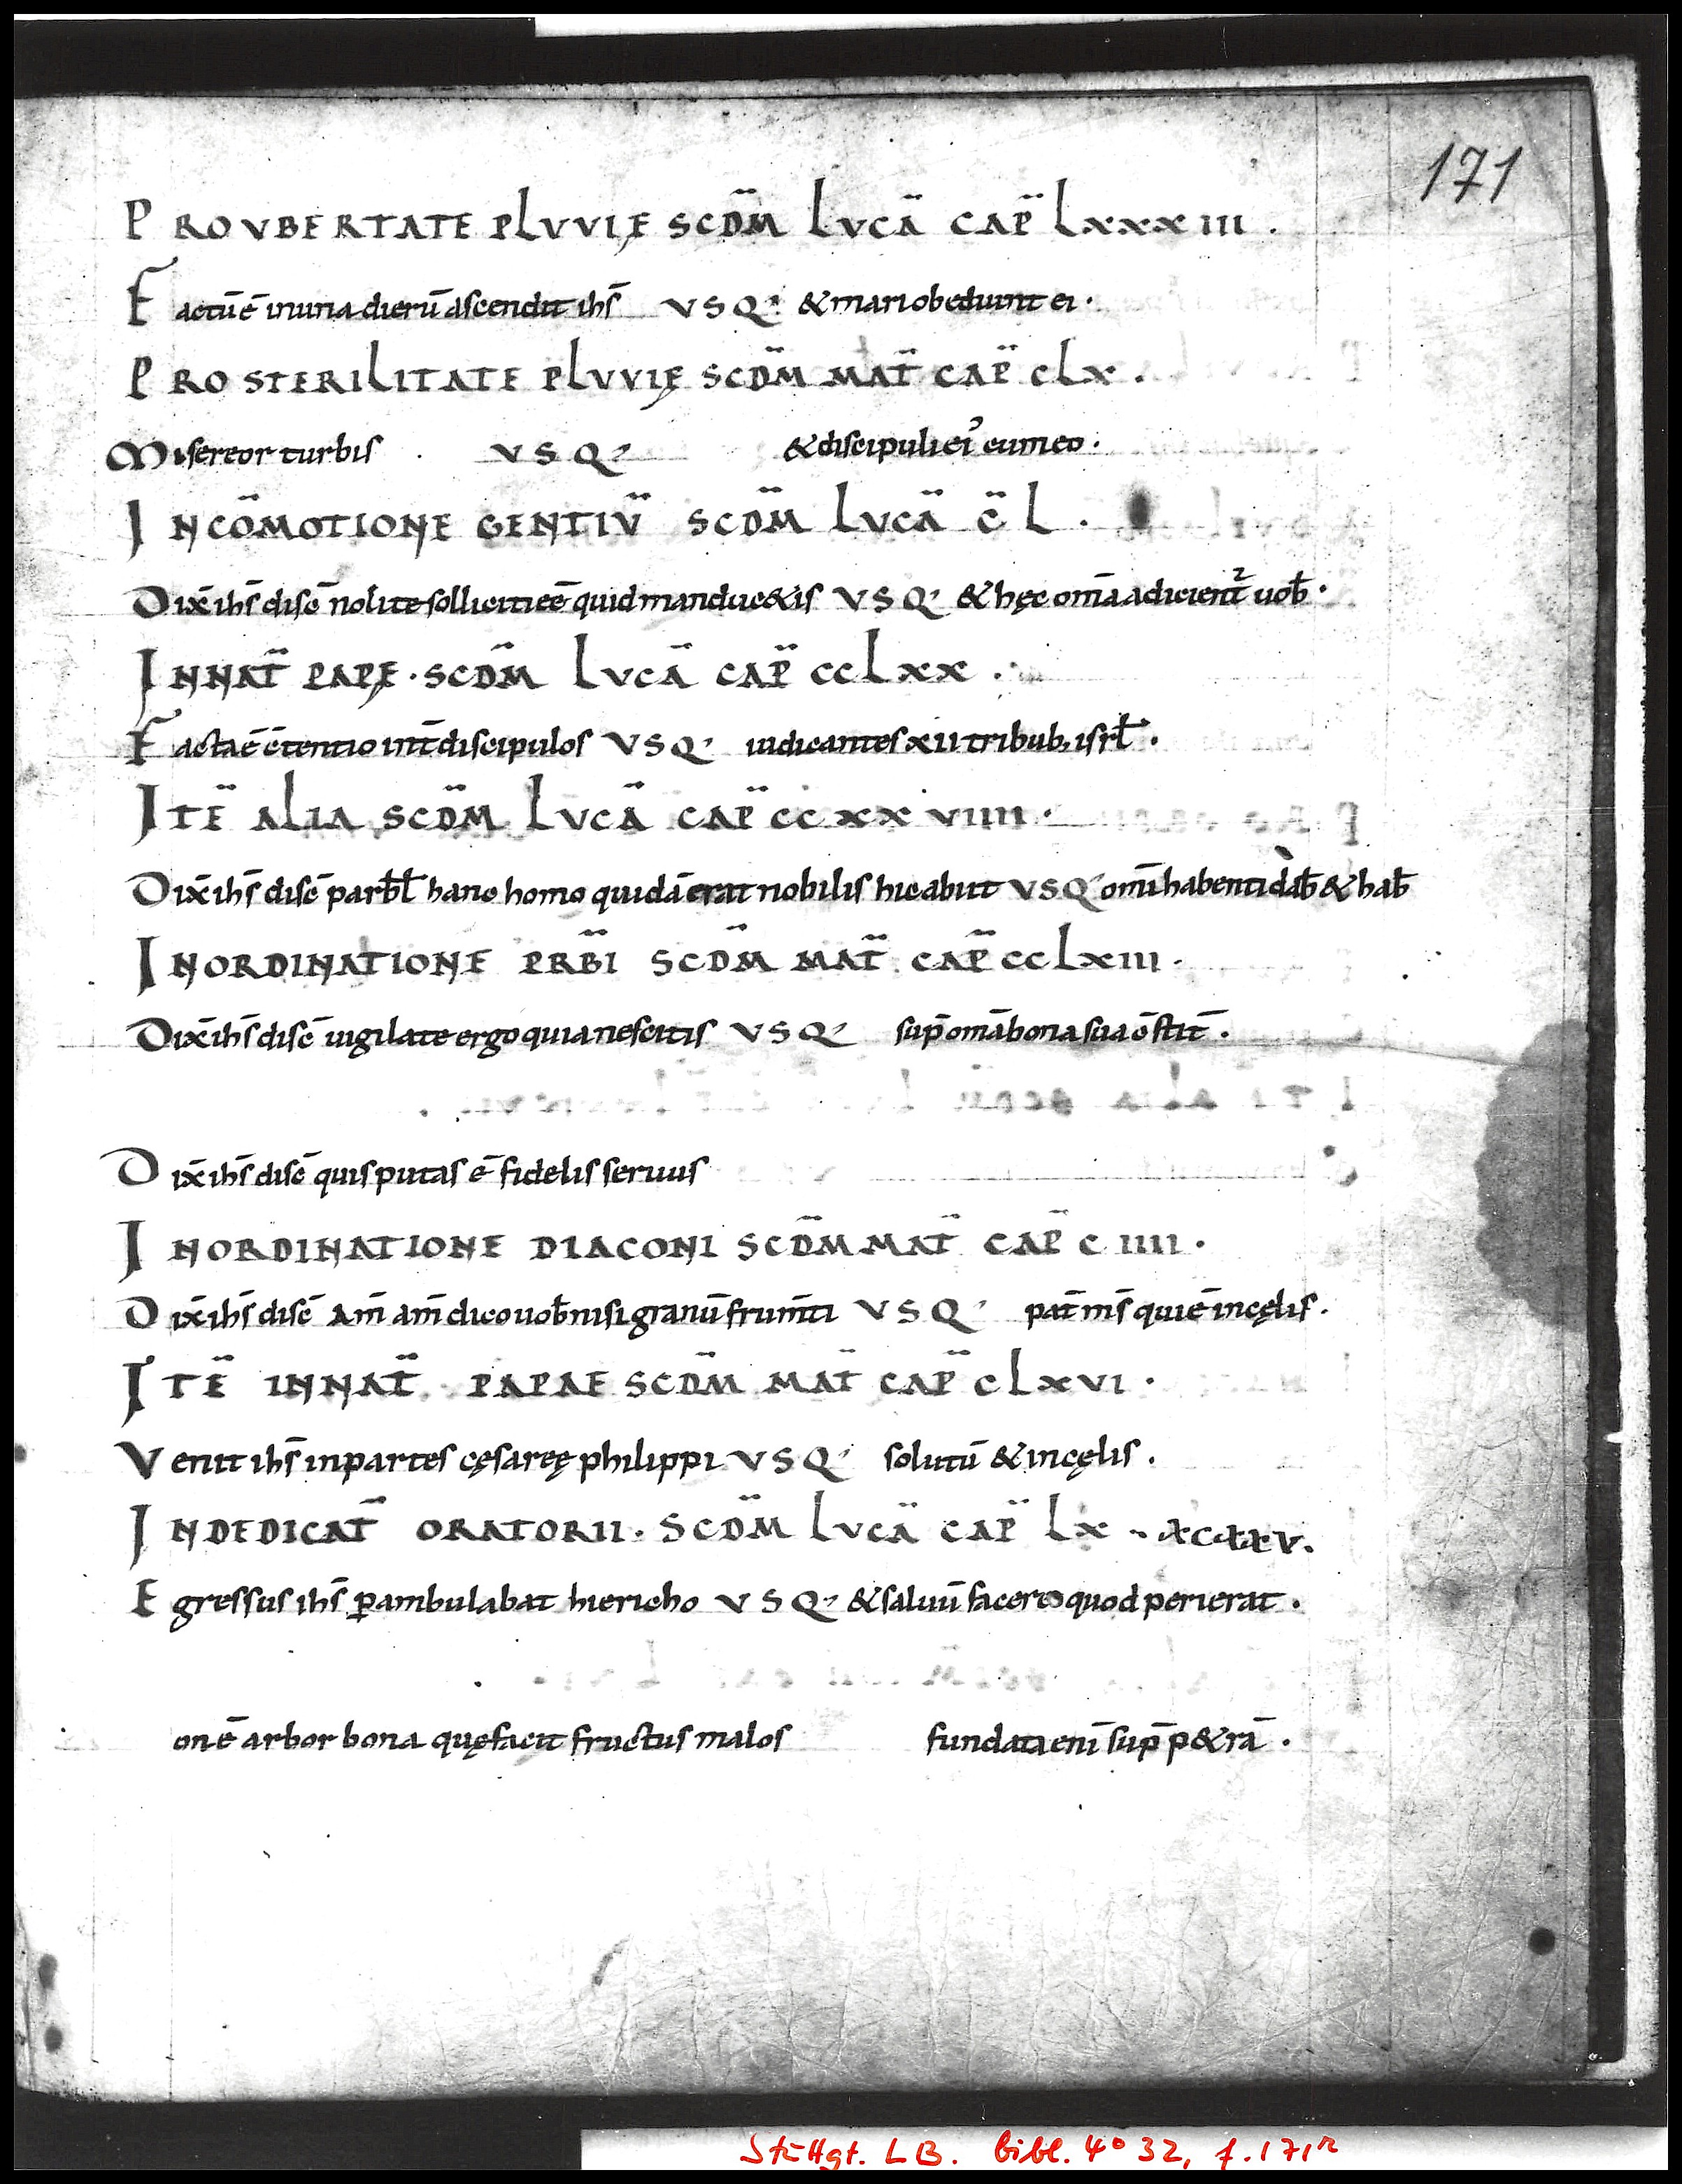 171
PRO VBERTATE PLVVIĘ SCDM̄ LVCĀ CAP̄ LXXXIII.
Factū ē in una dierū ascendit ihs̄ VSQ' & mari obediunt ei.
PRO STERILITATE PLVVIĘ SCDM̄ MAT̄ CAP̄ CLX.
Misereor turbis VSQ' & discipuli ei' cum eo.
IN CŌMOTIONE GENTIV̄ SCDM̄ LVCĀ C̄ L.
Dix̄ ihs̄ disc̄ nolite solliciti eē quid manduc&is VSQ' & hęc om̄a adicient̄ uob̄.
IN NAT̄ PAPĘ. SCDM̄ LVCĀ CAP̄ CCLXX.
Facta ē c̄tentio int̄ discipulos VSQ' iudicantes XII tribub; isrl̄.
ITĒ ALIA SCDM̄ LVCĀ CAP̄ CCXXVIIII.
Dix̄ ihs̄ disc̄ parb̄l hanc homo quidā erat nobilis hic abiit VSQ' omī habenti dab̄ & hab̄
IN ORDINATIONE PRB̄I SCDM̄ MAT̄ CAP̄ CCLXIII.
Dix̄ ihs̄ disc̄ uigilate ergo quia nescitis VSQ' sup̄ om̄a bona sua c̄stit̄.
Dix̄ ihs̄ disc̄ quis putas ē fidelis seruus
IN ORDINATIONE DIACONI SCDM̄ MAT̄ CAP̄ CIIII.
Dix̄ ihs̄ disc̄ Am̄ am̄ dico uob̄ nisi granū frum̄ti VSQ' pat̄ ms̄ qui ē in cęlis.
ITĒ IN NAT̄ PAPAE SCDM̄ MAT̄ CAP̄ CLXVI.
Venit ihs̄ in partes cęsaręę philippi VSQ' solutū & in cęlis.
IN DEDICAT̄ ORATORII. SCDM̄ LVCĀ CAP̄ LX
Egressus ihs̄ p̄ambulabat hiericho VSQ' & saluū facere quod perierat.
on ē arbor bona quę facit fructus malos fundata enī sup̄ p&rā.
Stuttgt. LB. bibl. 4° 32, f. 171r